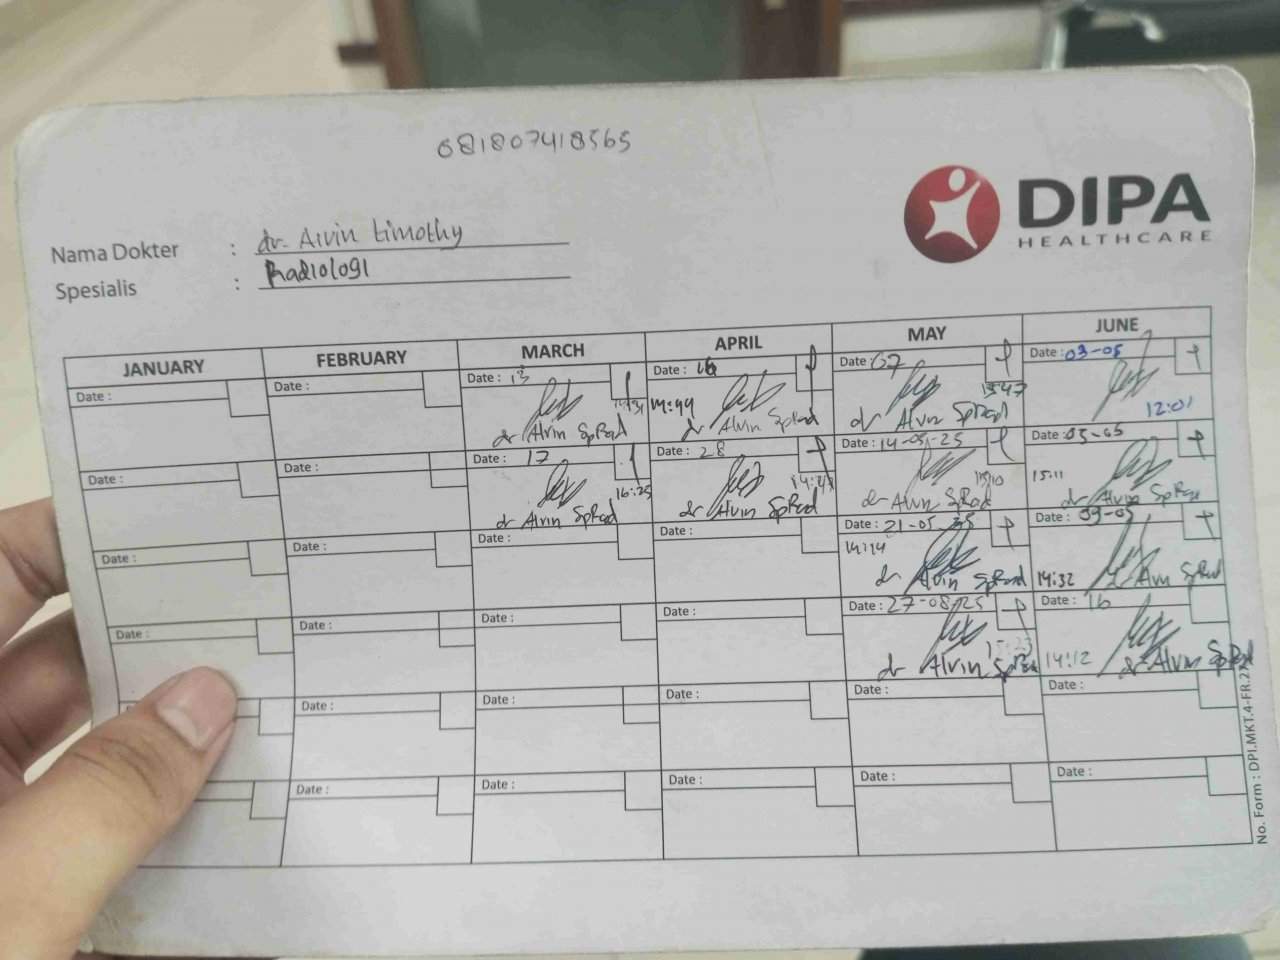 081807418565
DIPA
HEALTHCARE
Nama Dokter : dr. Alvin timothy
Spesialis : Radiologi
JANUARY FEBRUARY MARCH APRIL MAY JUNE
Date : Date : Date : 13 Date : 16 Date : 07 Date : 03-05
14:44 13:47 12:01
dr Alvin SpRad dr Alvin SpRad dr Alvin SpRad
Date : Date : Date : 17 Date : 28 Date : 14-05-25 Date : 05-05
16:25 15:10 15:11
dr Alvin SpRad dr Alvin SpRad dr Alvin SpRad dr Alvin SpRad
Date : Date : Date : Date : Date : 21-05-25 Date : 09-05
14:14 14:32
dr Alvin SpRad Alvin SpRad
Date : Date : Date : Date : Date : 27-08-25 Date : 16
15:23 14:12
dr Alvin SpRad dr Alvin SpRad
Date : Date : Date : Date : Date :
Date : Date : Date : Date : Date :
No. Form : DPI.MKT.4-FR.2